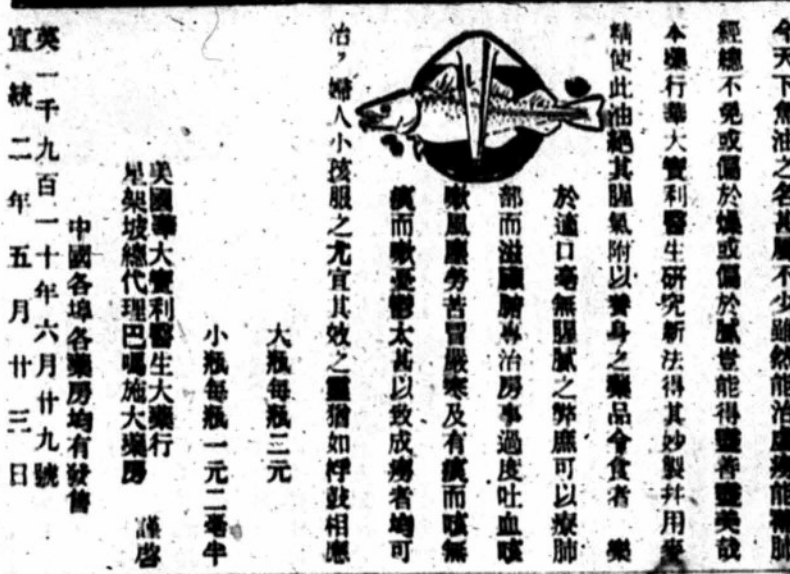 今天下魚油之名甚屬不少雖然能治虛癆能補肺
經總不免或偏於燥或偏於膩豈能得盡善盡美哉
本藥行華大寶利醫生研究新法得其妙製幷用麥
精使此油絕其腥氣附以養身之藥品令食者 樂
於適口毫無腥膩之弊庶可以療肺
部而滋臟腑專治房事過度吐血咳
嗽風塵勞苦冒嚴寒及有痰而咳無
痰而嗽憂鬱太甚以致成癆者均可
治，婦人小孩服之尤宜其效之靈猶如桴鼓相應
大瓶每瓶三元
小瓶每瓶一元二毫半
美國華大寶利醫生大藥行
星架坡總代理巴嗎施大藥房 謹啓
中國各埠各藥房均有發售
英一千九百一十年六月廿九號
宣統二年五月廿三日